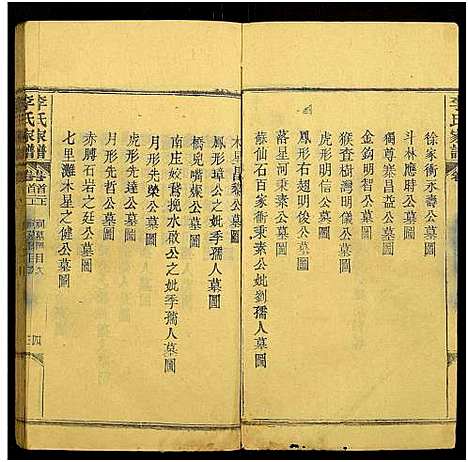 李氏家譜
徐家衝永壽公墓圖
斗林應時公墓圖
獨尊寨昌益公墓圖
金鈎明智公墓圖
猴查樹灣明儀公墓圖
虎形明信公墓圖
鳳形右趙明俊公墓圖
落星河秉素公墓圖
蘇仙石百家衝秉素公妣劉孺人墓圖
木星昌泰公墓圖
鳳形璋公之妣李孺人墓圖
橋兒嘴燦公墓圖
南庄姣鴛挽水啟公之妣季孺人墓圖
月形先榮公墓圖
虎形先達公墓圖
月形先哲公墓圖
赤膊石岩之廷公墓圖
七里灘木星之健公墓圖
李氏家譜
卷首
目次
四
李氏家譜
卷首